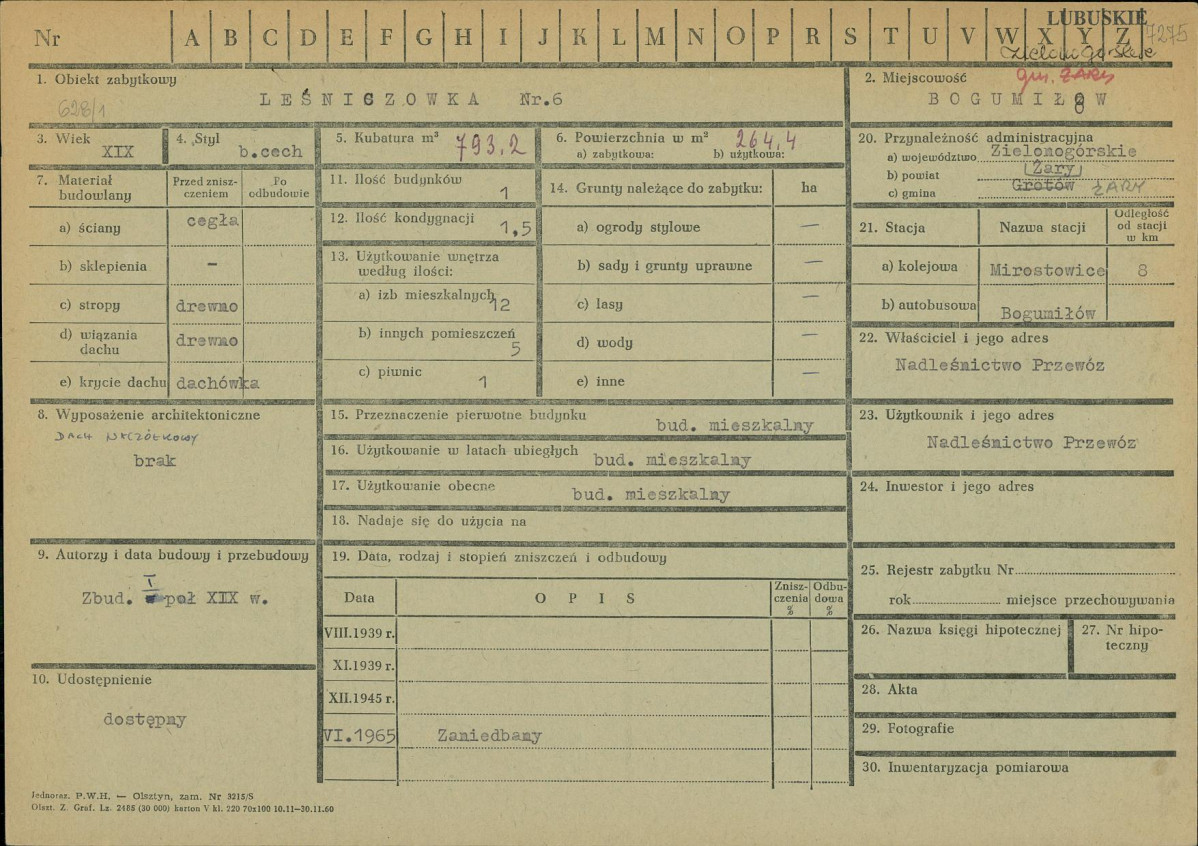 LUBUSKIE
7275
Nr A B C D E F G H I J K L M N O P R S T U V W X Y Z
Zielonogórskie
gm. ŻARY
1. Obiekt zabytkowy
628/1
LEŚNICZOWKA Nr.6
2. Miejscowość
BOGUMIŁÓW
3. Wiek
XIX
4. Styl
b.cech
5. Kubatura m³ 793.2
6. Powierzchnia w m² 264,4
a) zabytkowa: b) użytkowa:
7. Materiał budowlany
Przed znisz-
czeniem
Po
odbudowie
a) ściany cegła
b) sklepienia –
c) stropy drewno
d) wiązania
dachu drewno
e) krycie dachu dachówka
8. Wyposażenie architektoniczne
DACH NACZÓŁKOWY
brak
9. Autorzy i data budowy i przebudowy
Zbud. I poł XIX w.
10. Udostępnienie
dostępny
11. Ilość budynków 1
12. Ilość kondygnacji 1,5
13. Użytkowanie wnętrza
według ilości:
a) izb mieszkalnych 12
b) innych pomieszczeń 5
c) piwnic 1
14. Grunty należące do zabytku: ha
a) ogrody stylowe —
b) sady i grunty uprawne —
c) lasy —
d) wody —
e) inne —
15. Przeznaczenie pierwotne budynku
bud. mieszkalny
16. Użytkowanie w latach ubiegłych bud. mieszkalny
17. Użytkowanie obecne bud. mieszkalny
18. Nadaje się do użycia na
19. Data, rodzaj i stopień zniszczeń i odbudowy
Data OPIS
Znisz-
czenia
%
Odbu-
dowa
%
VIII.1939 r.
XI.1939 r.
XII.1945 r.
VI.1965 Zaniedbany
20. Przynależność administracyjna
a) województwo Zielonogórskie
b) powiat Żary
c) gmina Grotów ŻARY
21. Stacja Nazwa stacji
Odległość
od stacji
w km
a) kolejowa Mirostowice 8
b) autobusowa Bogumiłów
22. Właściciel i jego adres
Nadleśnictwo Przewóz
23. Użytkownik i jego adres
Nadleśnictwo Przewóz
24. Inwestor i jego adres
25. Rejestr zabytku Nr
rok miejsce przechowywania
26. Nazwa księgi hipotecznej
27. Nr hipo-
teczny
28. Akta
29. Fotografie
30. Inwentaryzacja pomiarowa
Jednoraz. P.W.H. — Olsztyn, zam. Nr 3215/S
Olszt. Z. Graf. Lz. 2485 (30 000) karton V kl. 220 70x100 10.11—30.11.60